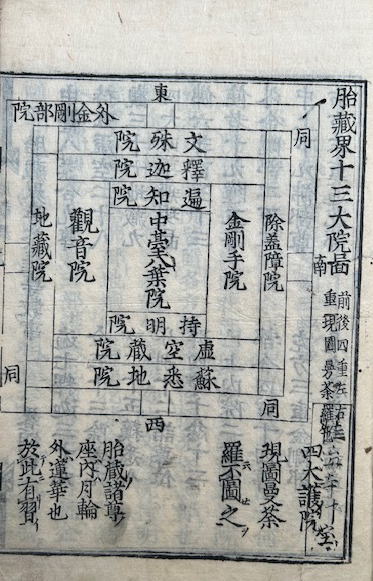 胎藏界十三大院圖
前後四重左右
重現圖曼荼羅
東
外金剛部院
同
文殊院
釋迦院
遍知院
除蓋障院
金剛手院
中臺八葉院
觀音院
地藏院
南
持明院
虛空藏院
蘇悉地院
同
同
西
四大護院
現圖曼荼
羅不圖之
胎藏諸尊
座內月輪
外蓮華也
於此有習